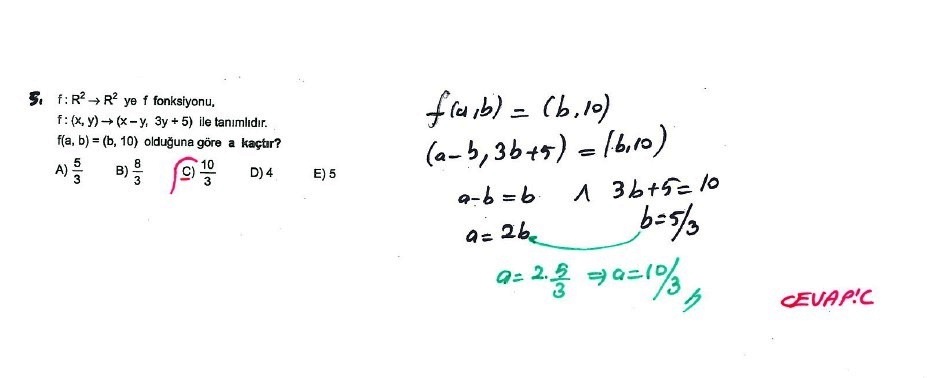 5. f : R² → R² ye f fonksiyonu,
f : (x, y) → (x – y, 3y + 5) ile tanımlıdır.
f(a, b) = (b, 10) olduğuna göre a kaçtır?
A) 5/3 B) 8/3 C) 10/3 D) 4 E) 5
f(a,b) = (b,10)
(a-b, 3b+5) = (b,10)
a-b=b ∧ 3b+5=10
a=2b b=5/3
a=2.5/3 ⇒ a=10/3
CEVAP:C